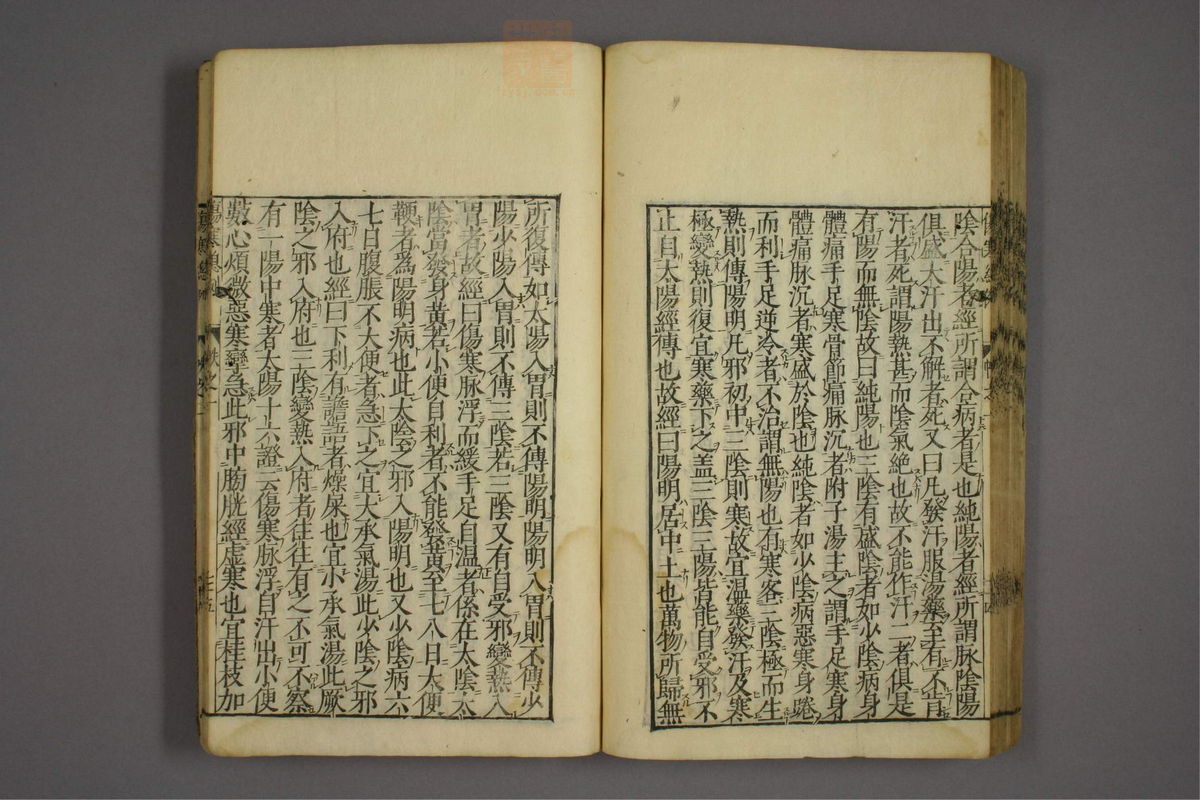 陰合陽者經所謂合病者是也純陽者經所謂脉陰陽
俱盛大汗出不解者死又曰凡發汗服湯藥至有不肯
汗者死謂陽熱甚而陰氣絶也故不能作汗二者俱是
有陽而無陰故曰純陽也三陰有盛陰者如少陰病身
體痛手足寒骨節痛脉沉者附子湯主之謂手足寒身
體痛脉沉者寒盛於陰也純陰者如少陰病惡寒身踡
而利手足逆冷者不治謂無陽也有寒客三陰極而生
熱則傳陽明凡邪初中三陰則寒故宜温藥發汗及寒
極變熱則復宜寒藥下之盖三陰三陽皆能自受邪不
止自太陽經傳也故經曰陽明居中土也萬物所歸無
所復傳如太陽入胃則不傳陽明陽明入胃則不傳少
陽少陽入胃則不傳三陰若三陰又有自受邪變熱入
胃者故經曰傷寒脉浮而緩手足自温者係在太陰太
陰當發身黄若小便自利者不能發黄至七八日大便
鞕者為陽明病也此太陰之邪入陽明也又少陰病六
七日腹脹不大便者急下之宜大承氣湯此少陰之邪
入府也經曰下利有譫語者燥屎也宜小承氣湯此厥
陰之邪入府也三陰變熱入府者往往有之不可不察
有一陽中寒者太陽十六證云傷寒脉浮自汗出小便
數心煩微惡寒攣急此邪中膀胱經虚寒也宜桂枝加